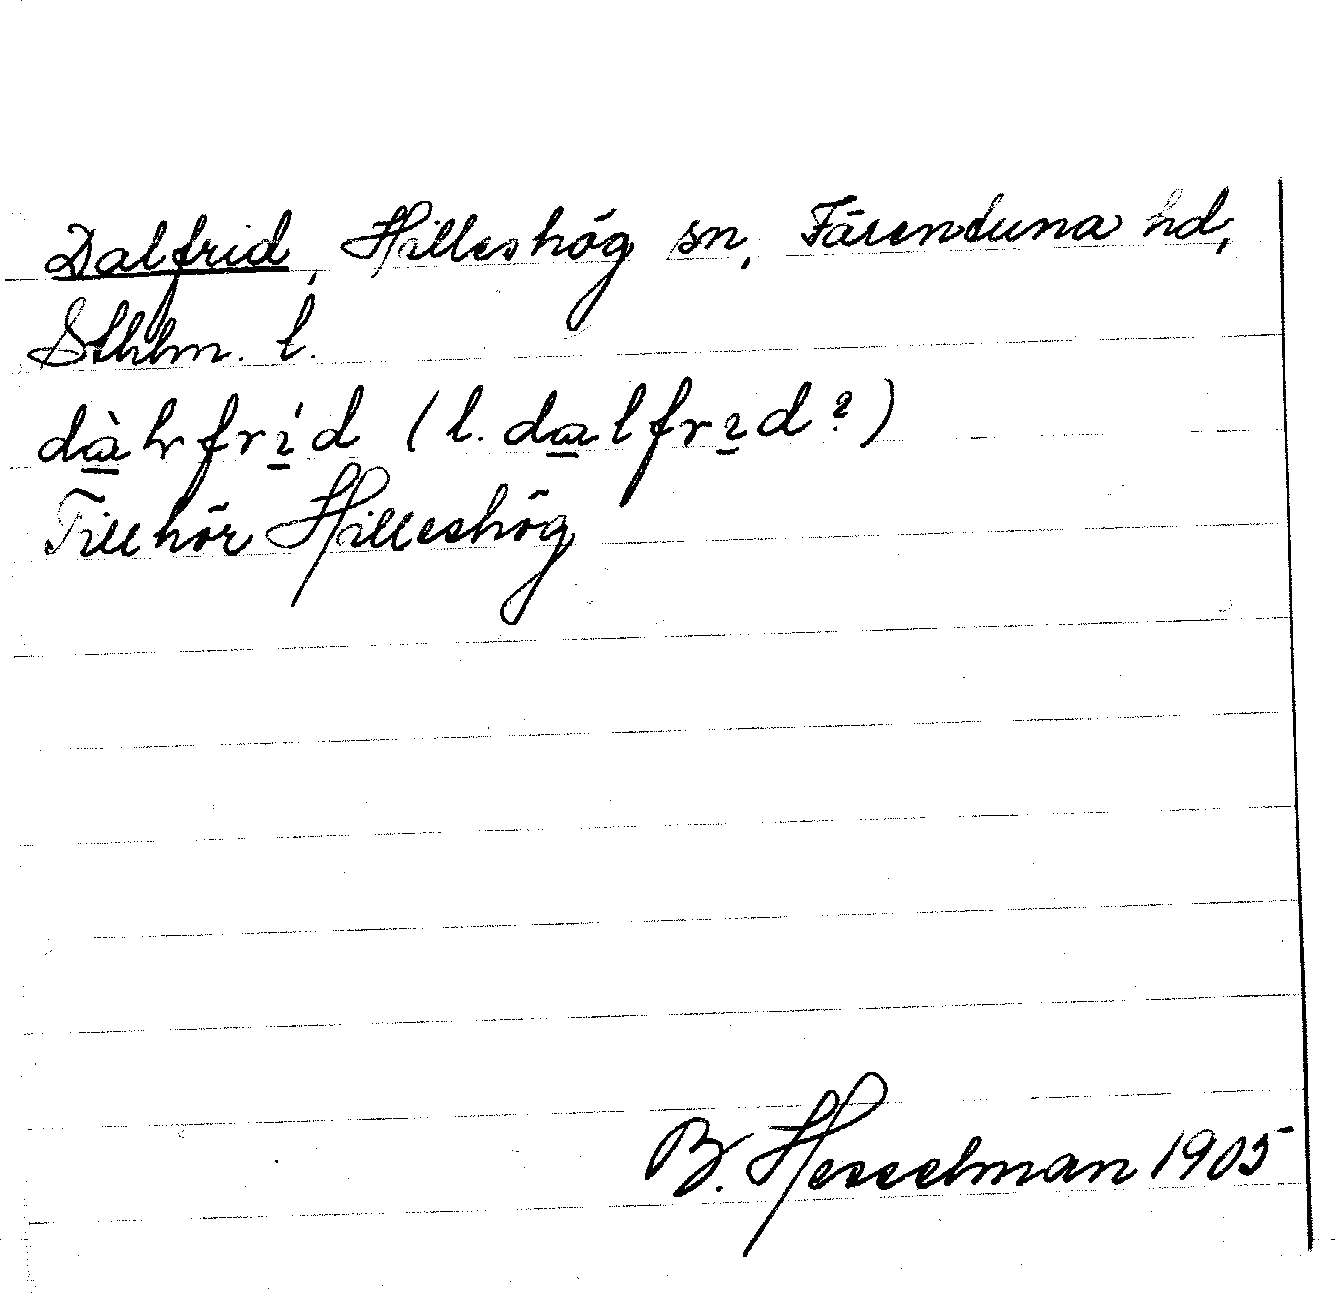 Dalfrid, Hilleshög sn, Färentuna hd,
Sthlm. l.
dàhrfríd (l. dalfrid?)
Tillhör Hilleshög
B. Hesselman 1905